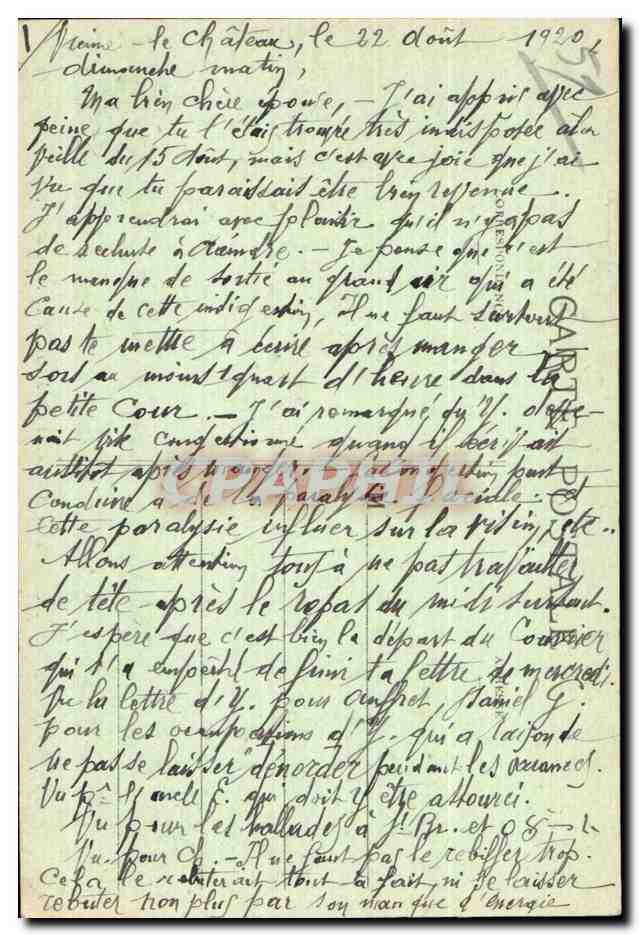 1/ Vienne-le-Château, le 22 Août 1920,
57
dimanche matin,
Ma bien chère épouse, - J'ai appris avec
peine, que tu t'étais trouvée très indisposée à la
veille du 15 Août, mais c'est avec joie que j'ai
vu que tu paraissais être bien revenue.
J'apprendrai avec plaisir qu'il n'y a pas
de rechute à craindre. - Je pense que c'est
le manque de sortie au grand air qui a été
cause de cette indigestion, Il ne faut surtout
pas te mettre à écrire après manger
sors au moins 1 quart d'heure dans la
petite Cour. - J'ai remarqué qu'Y. deve-
nait vite congestionné quand il écrivait
aussitôt après manger. congestion peut
conduire à de la paralysie faciale. et
cette paralysie influer sur la vision, etc..
Allons attention tous à ne pas travailler
de tête après le repas du midi surtout.
J'espère que c'est bien le départ du Courrier
qui t'a empêché de finir ta lettre de mercredi.
Vu la lettre d'Y. pour Daniel G.
pour les occupations d'Y. qui a raison de
ne pas se laisser déborder pendant les vacances.
Vu pr le E. qui doit y être
Vu pour les à St Br. et
Vu pour Ch. - Il ne faut pas le rebiffer trop.
Cela le rebuterait tout à fait, ni se laisser
rebuter non plus par son manque d'énergie
CORRESPONDANCE
CARTE POSTALE
ADRESSE
CPARAMA